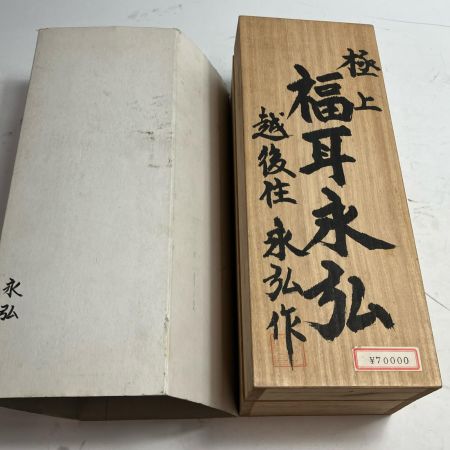 極上
福耳永弘
越後住 永弘作
¥70000
永弘